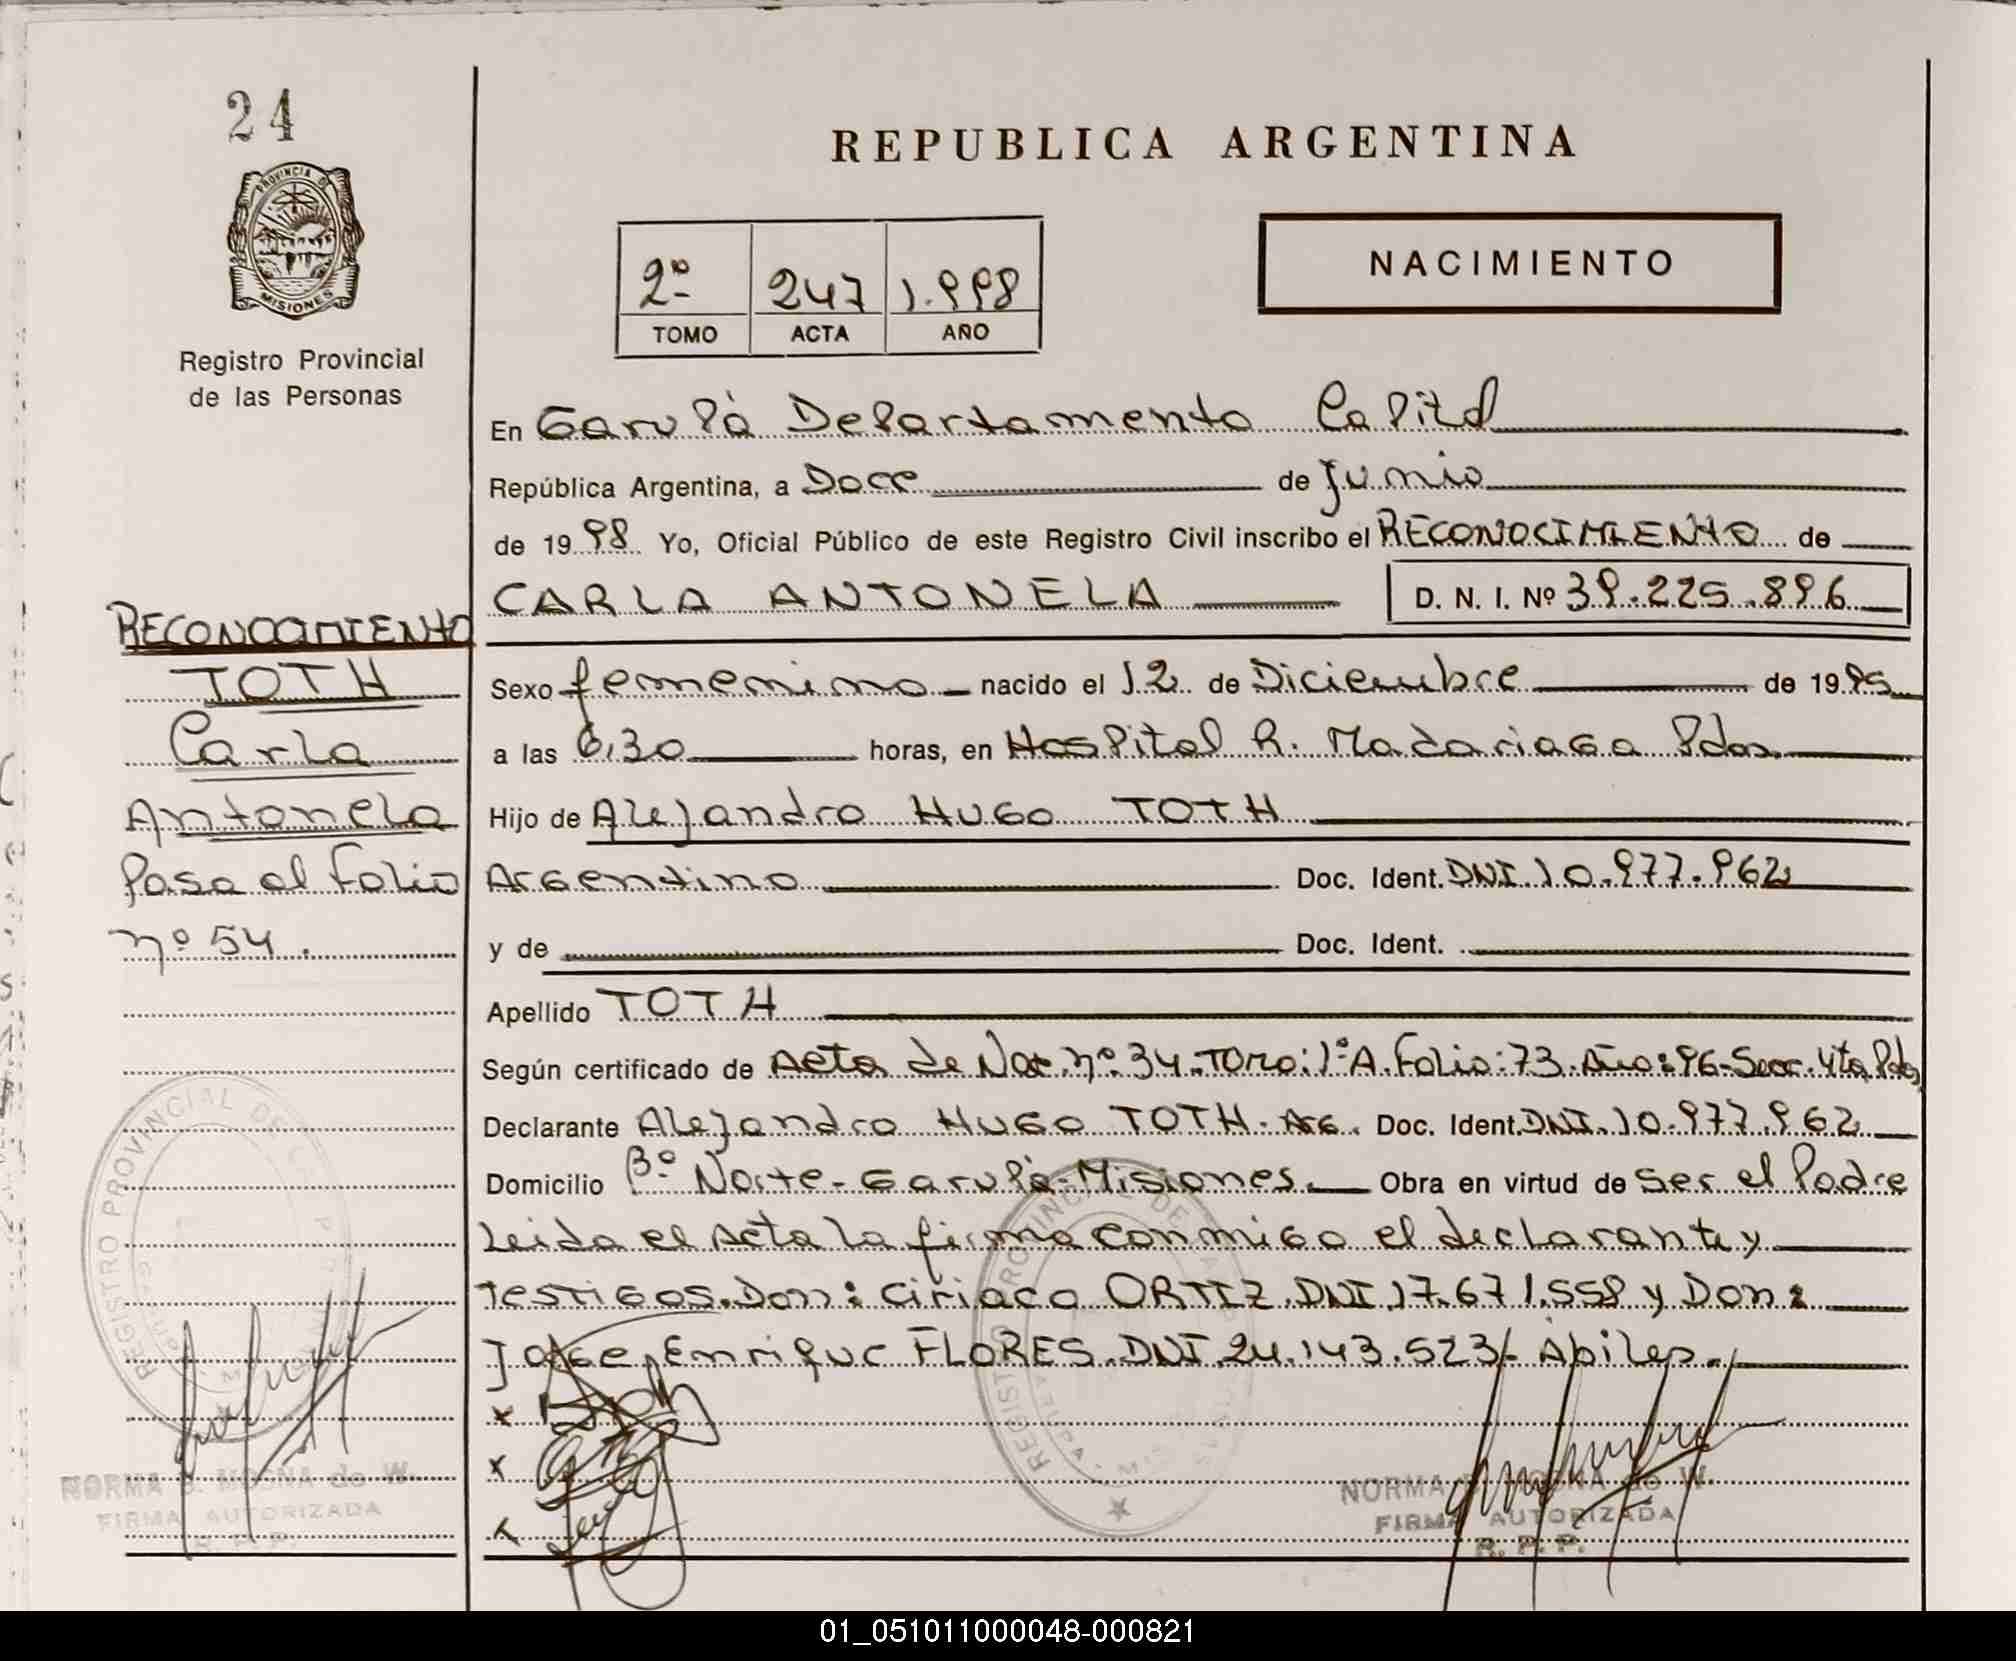 24
PROVINCIA DE
MISIONES
Registro Provincial
de las Personas
REPUBLICA ARGENTINA
2º 247 1.998
TOMO ACTA AÑO
NACIMIENTO
En Garupà Departamento Capital
República Argentina, a Doce de Junio
de 1998 Yo, Oficial Público de este Registro Civil inscribo el RECONOCIMIENTO de
CARLA ANTONELA D. N. I. Nº 39.225.896
Sexo femenino nacido el 12 de Diciembre de 1995
a las 6,30 horas, en Hospital R. Madariaga Pdas.
Hijo de Alejandro Hugo TOTH
Argentino Doc. Ident. DNI.10.977.962
y de Doc. Ident.
Apellido TOTH
Según certificado de Acta de Nac. nº.34.Tomo:1ºA.Folio:73.Año:96-Secc.4ta.Pdas
Declarante Alejandro Hugo TOTH. Arg. Doc. Ident. DNI.10.977.962
Domicilio Bº Norte-Garupà-Misiones. Obra en virtud de ser el Padre
Leida el Acta la firma conmigo el declarante y
testigos.Don: Ciriaco ORTIZ.DNI.17.671.558 y Don:
Jorge Enrique FLORES.DNI.24.143.523/. Abiles.
RECONOCIMIENTO
TOTH
Carla
Antonela
Pasa al Folio
nº 54.
REGISTRO PROVINCIAL DE
NORMA B. MOSNA de W.
FIRMA AUTORIZADA
R. P. P.
REGISTRO PROVINCIAL DE
NORMA B. MOSNA de W.
FIRMA AUTORIZADA
R. P. P.
01_051011000048-000821